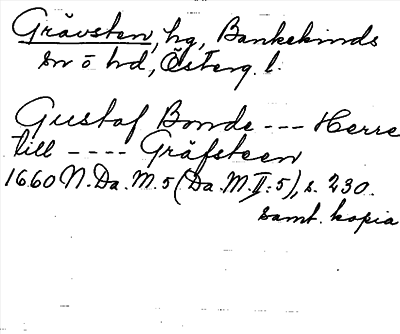 Grävsten, hg, Bankekinds
sn o hd, Österg. l.
Gustaf Bonde --- Herre
till ---- Gräfsteen
1660 N. Da. M. 5 (Da. M. II:5), s. 230.
samt. kopia